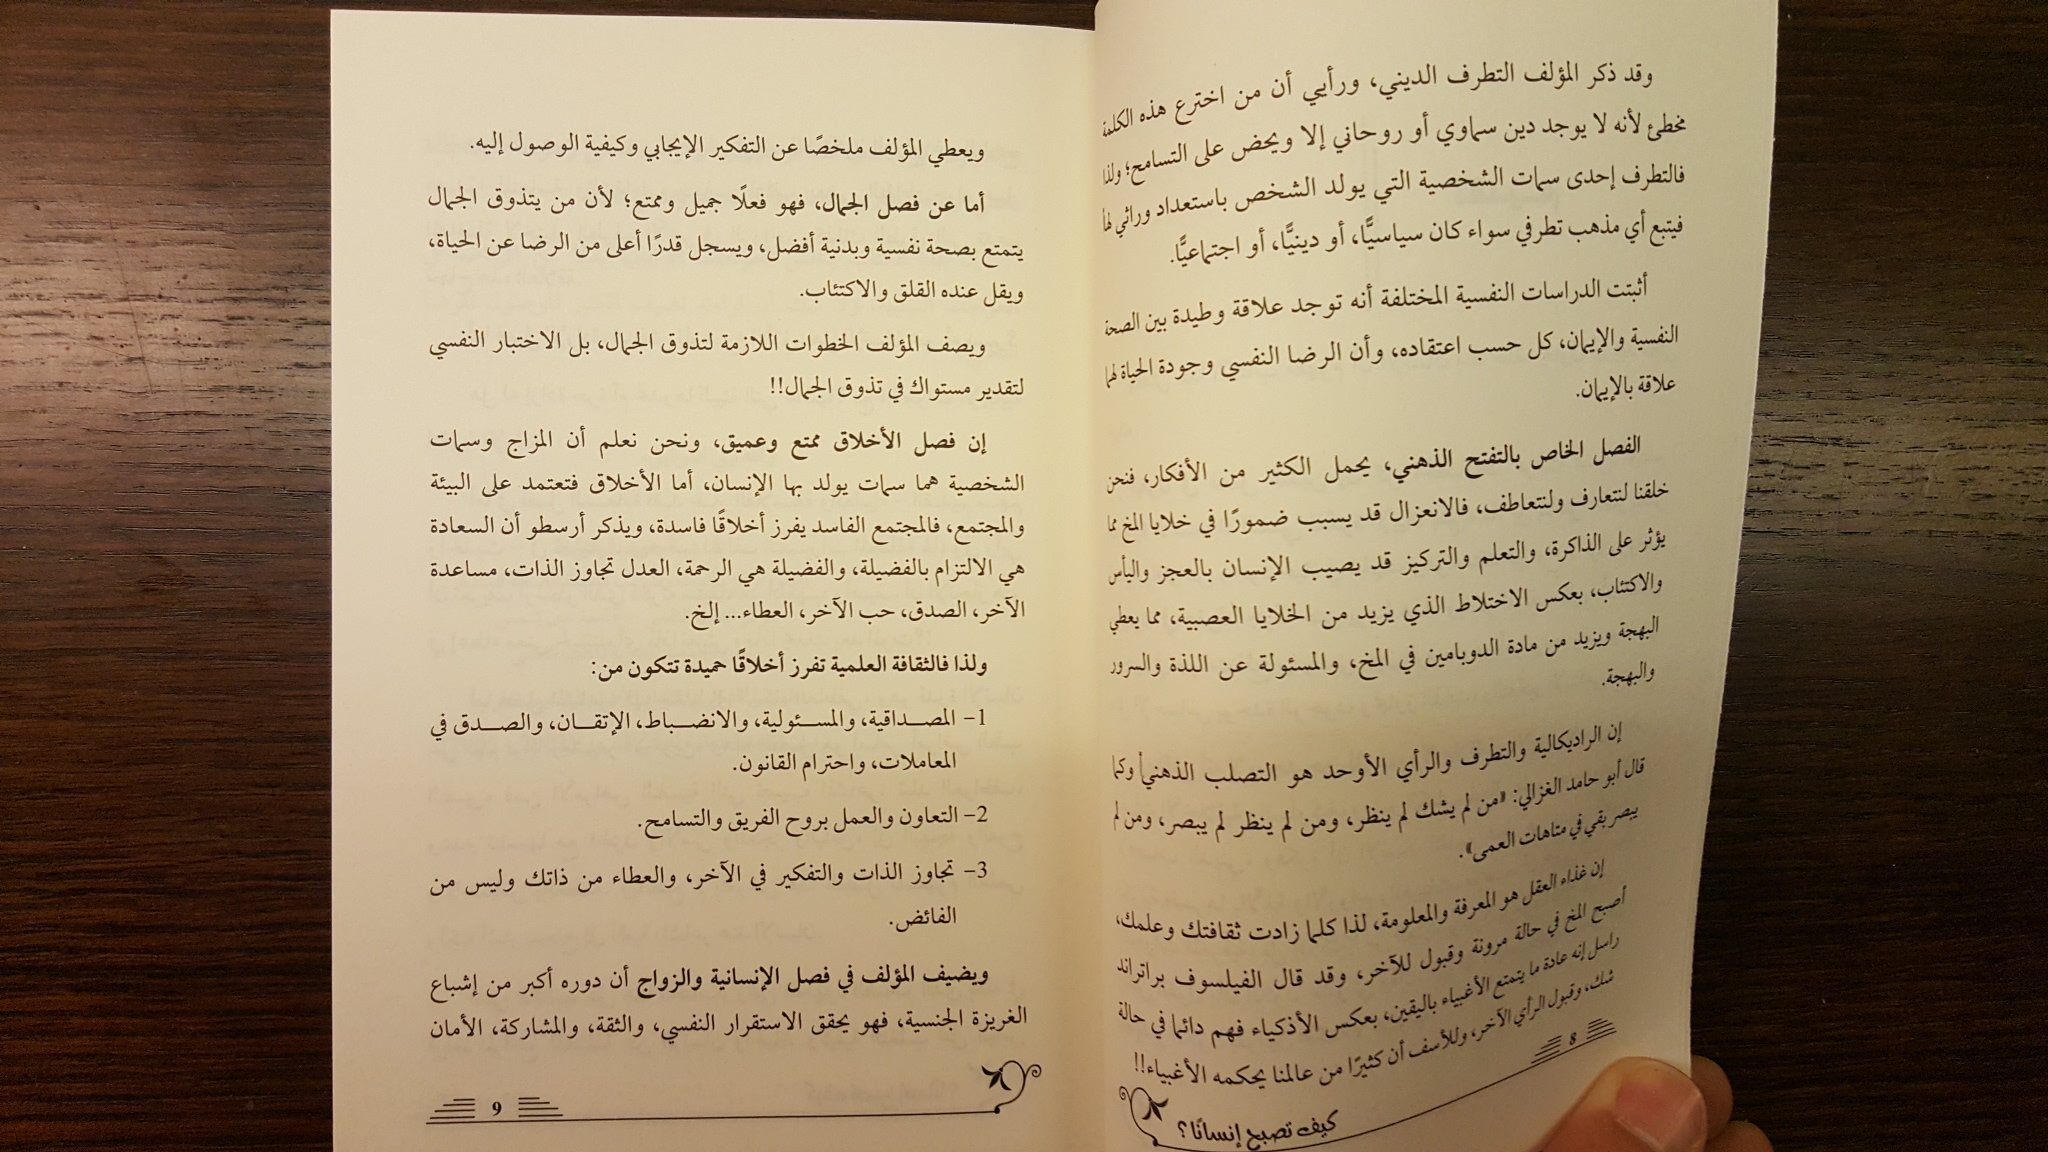 وقد ذكر المؤلف التطرف الديني، ورأيي أن من اخترع هذه الكلمة
مخطئ لأنه لا يوجد دين سماوي أو روحاني إلا ويحض على التسامح؛ ولذا
فالتطرف إحدى سمات الشخصية التي يولد الشخص باستعداد وراثي لها
فيتبع أي مذهب تطرفي سواء كان سياسيًّا، أو دينيًّا، أو اجتماعيًّا.
أثبتت الدراسات النفسية المختلفة أنه توجد علاقة وطيدة بين الصحة
النفسية والإيمان، كل حسب اعتقاده، وأن الرضا النفسي وجودة الحياة لهما
علاقة بالإيمان.
الفصل الخاص بالتفتح الذهني، يحمل الكثير من الأفكار، فنحن
خلقنا لنتعارف ولنتعاطف، فالانعزال قد يسبب ضمورًا في خلايا المخ مما
يؤثر على الذاكرة، والتعلم والتركيز قد يصيب الإنسان بالعجز واليأس
والاكتئاب، بعكس الاختلاط الذي يزيد من الخلايا العصبية، مما يعطي
البهجة ويزيد من مادة الدوبامين في المخ، والمسئولة عن اللذة والسرور
والبهجة.
إن الراديكالية والتطرف والرأي الأوحد هو التصلب الذهني وكما
قال أبو حامد الغزالي: «من لم يشك لم ينظر، ومن لم ينظر لم يبصر، ومن لم
يبصر بقي في متاهات العمى».
إن غذاء العقل هو المعرفة والمعلومة، لذا كلما زادت ثقافتك وعلمك،
أصبح المخ في حالة مرونة وقبول للآخر، وقد قال الفيلسوف براتراند
راسل إنه عادة ما يتمتع الأغبياء باليقين، بعكس الأذكياء فهم دائما في حالة
شك، وقبول الرأي الآخر، وللأسف أن كثيرًا من عالمنا يحكمه الأغبياء!!
8
كيف تصبح إنسانًا؟
ويعطي المؤلف ملخصًا عن التفكير الإيجابي وكيفية الوصول إليه.
أما عن فصل الجمال، فهو فعلًا جميل وممتع؛ لأن من يتذوق الجمال
يتمتع بصحة نفسية وبدنية أفضل، ويسجل قدرًا أعلى من الرضا عن الحياة،
ويقل عنده القلق والاكتئاب.
ويصف المؤلف الخطوات اللازمة لتذوق الجمال، بل الاختبار النفسي
لتقدير مستواك في تذوق الجمال!!
إن فصل الأخلاق ممتع وعميق، ونحن نعلم أن المزاج وسمات
الشخصية هما سمات يولد بها الإنسان، أما الأخلاق فتعتمد على البيئة
والمجتمع، فالمجتمع الفاسد يفرز أخلاقًا فاسدة، ويذكر أرسطو أن السعادة
هي الالتزام بالفضيلة، والفضيلة هي الرحمة، العدل تجاوز الذات، مساعدة
الآخر، الصدق، حب الآخر، العطاء... إلخ.
ولذا فالثقافة العلمية تفرز أخلاقًا حميدة تتكون من:
1- المصداقية، والمسئولية، والانضباط، الإتقان، والصدق في
المعاملات، واحترام القانون.
2- التعاون والعمل بروح الفريق والتسامح.
3- تجاوز الذات والتفكير في الآخر، والعطاء من ذاتك وليس من
الفائض.
ويضيف المؤلف في فصل الإنسانية والزواج أن دوره أكبر من إشباع
الغريزة الجنسية، فهو يحقق الاستقرار النفسي، والثقة، والمشاركة، الأمان
9